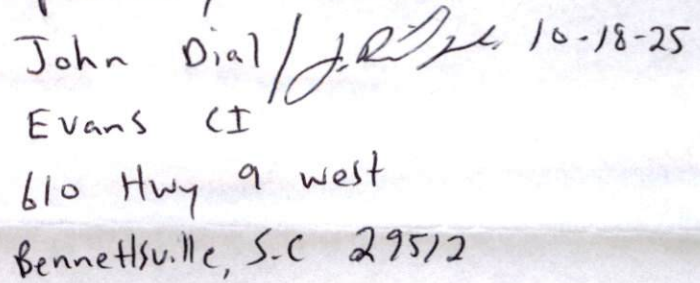 John Dial / 10-18-25
Evans CI
610 Hwy 9 west
Bennettsville, S.C 29512